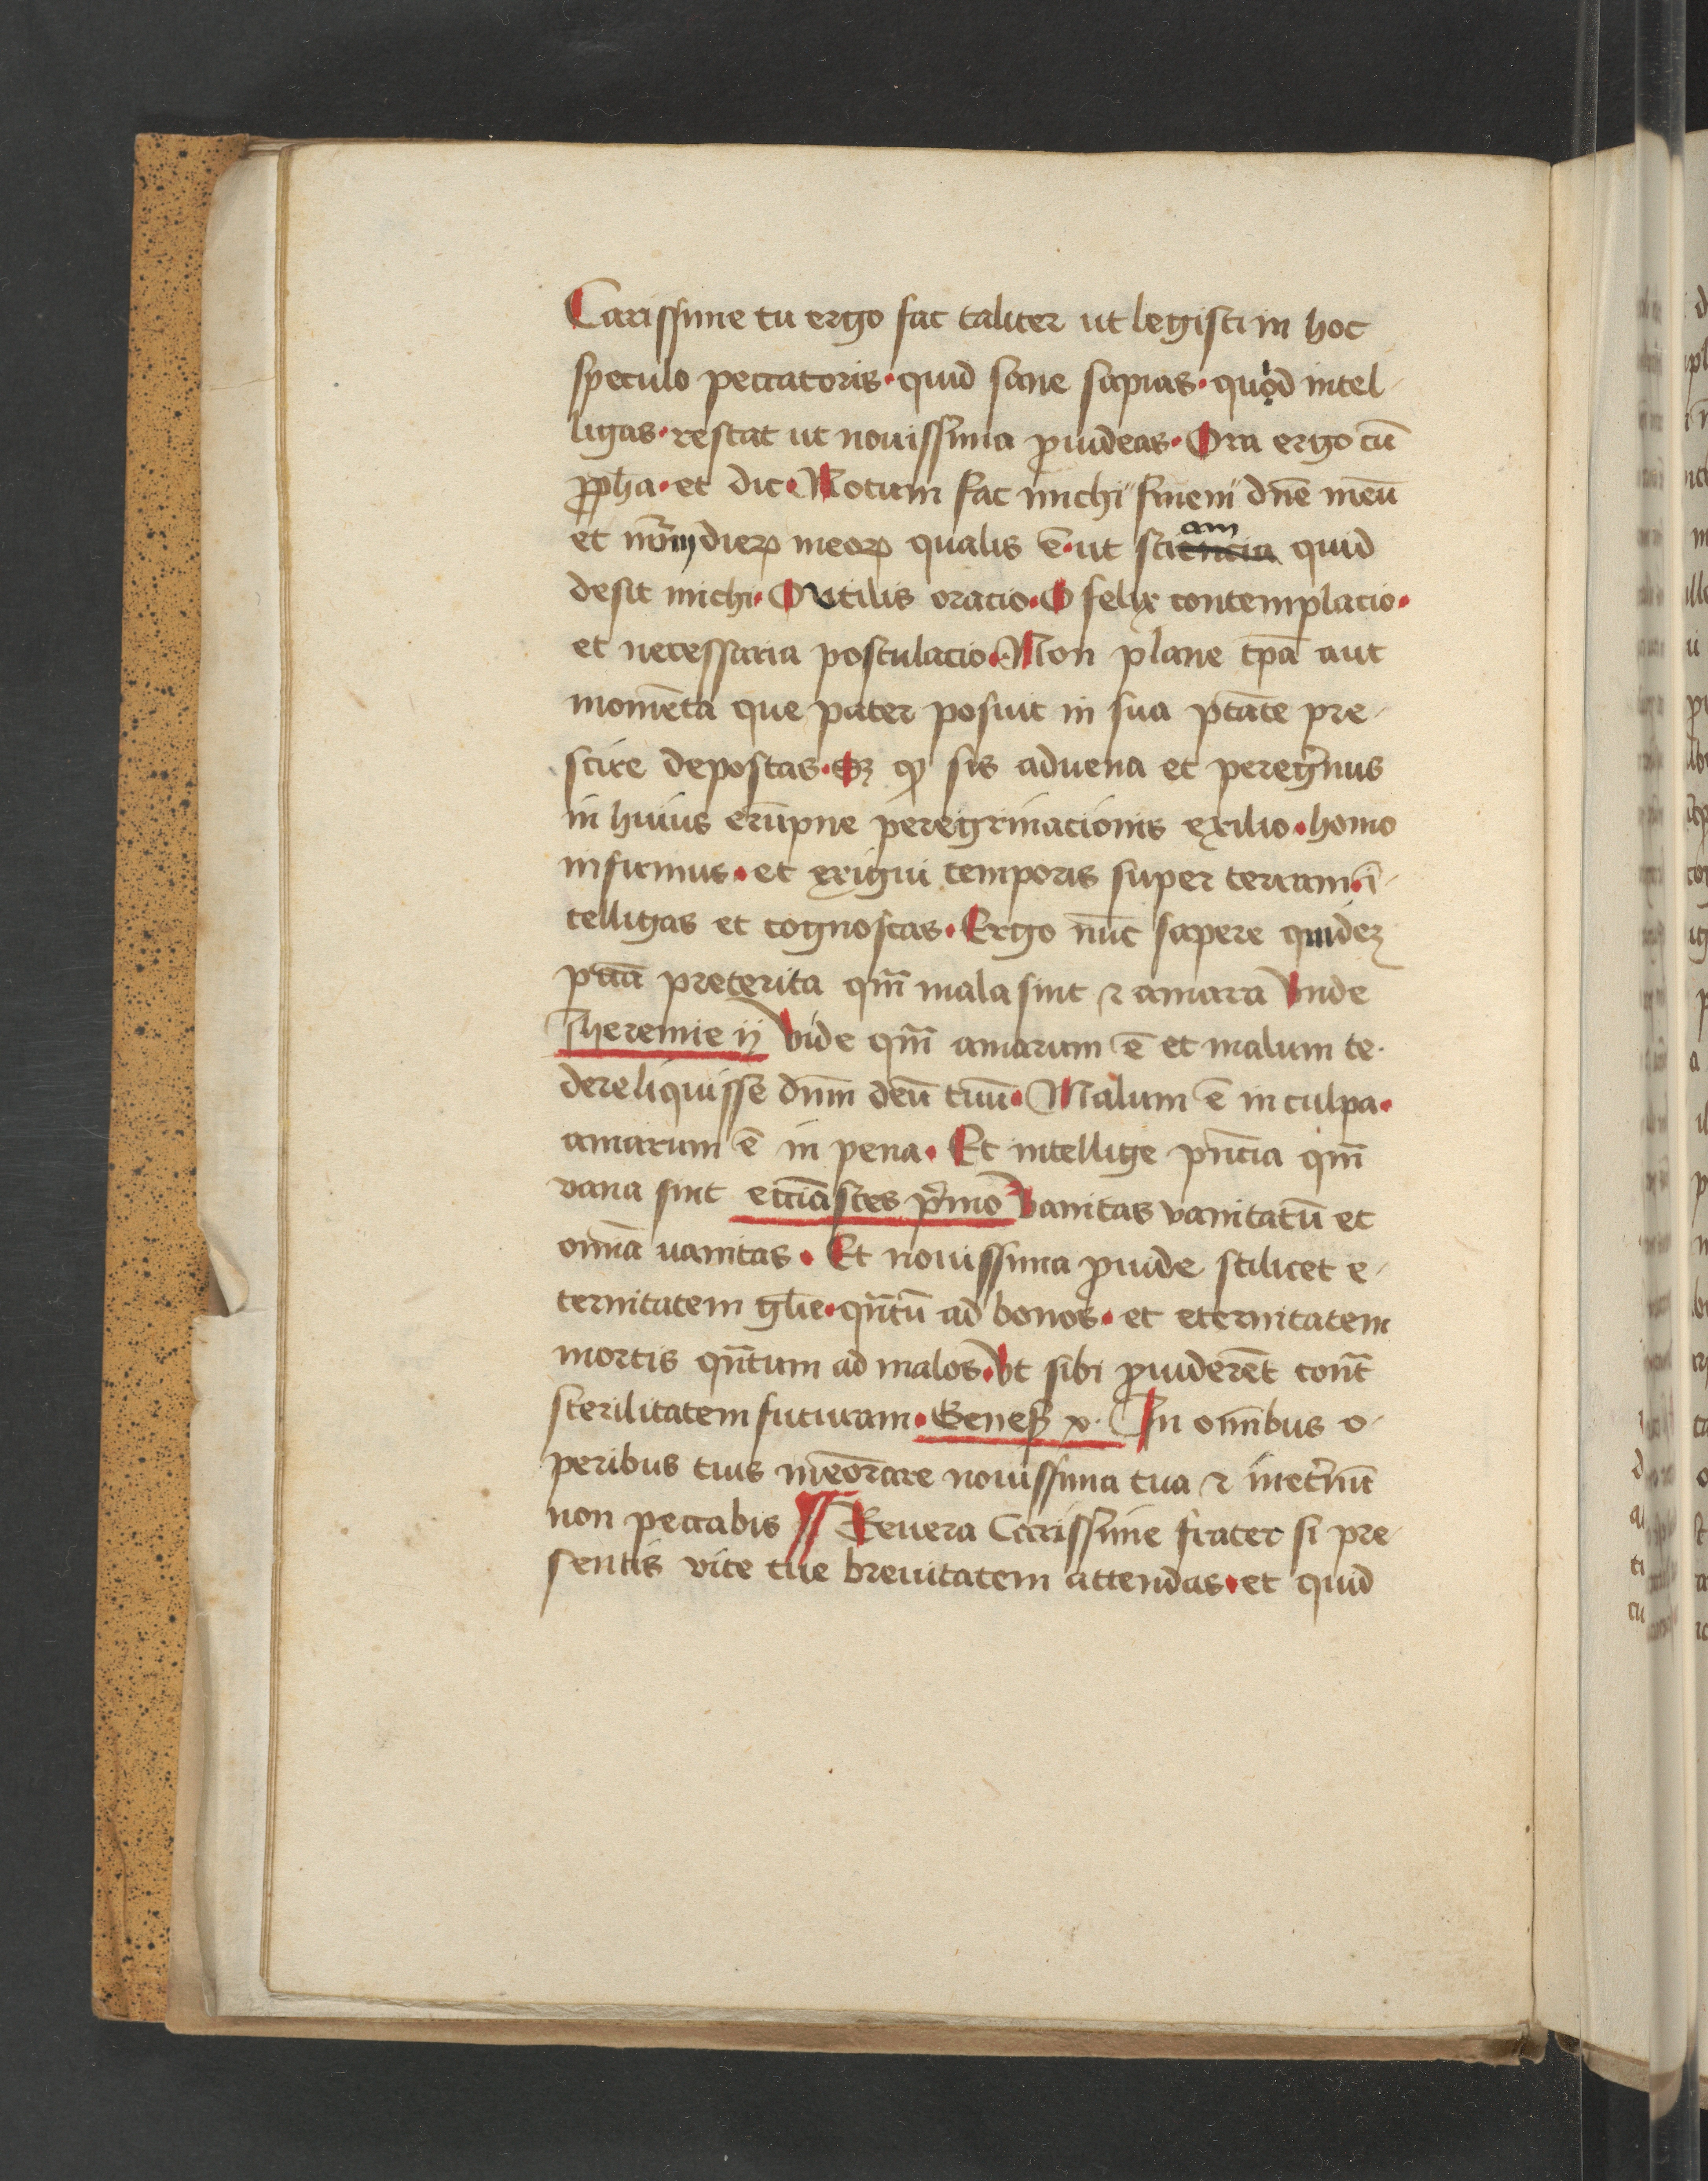 Carissime tu ergo fac taliter ut legisti in hoc
speculo peccatoris · quid sane sapias · quod intel-
ligas · restat ut nouissima ꝓuideas · Ora ergo cū
ꝓph̄a · et dic · Notum fac michi finem dn̄e meū
et nūm dieꝝ meoꝝ qualis ē · ut sciam quid
desit michi · O vtilis oracio · O felix contemplacio ·
et necessaria postulacio · Non plane tp̄a aut
momēta que pater posuit in sua ptāte pre-
scire deposcas · Sꝫ ꝙ sis aduena et peregⁱnus
in huius erūpne peregrinacionis exilio · homo
infirmus · et exigui temporis super terram · ī-
telligas et cognoscas · Ergo nūc sapere quideꝫ
pctā preterita qm̄ mala sint ⁊ amara Vnde
Iheremie ij Vide qm̄ amarum ē et malum te
dereliquisse dnm̄ deū tuū · Malum ē in culpa ·
amarum ē in pena · Et intellige pn̄cia qm̄
vana sint eccⁱastes pⁱmo Vanitas vanitatū et
omīa uanitas · Et nouissima ꝓuide scilicet e-
ternitatem gl̄ie · qn̄tū ad bonos · et eternitatem
mortis qn̄tum ad malos · Vt sibi ꝓuiderēt cont̄
sterilitatem futuram · Geneß x · In omībus o-
peribus tuis meōrare nouissima tua ⁊ inet̓nū
non peccabis Reuera Carissime frater si pre-
sentis vite tue breuitatem attendas · et quid